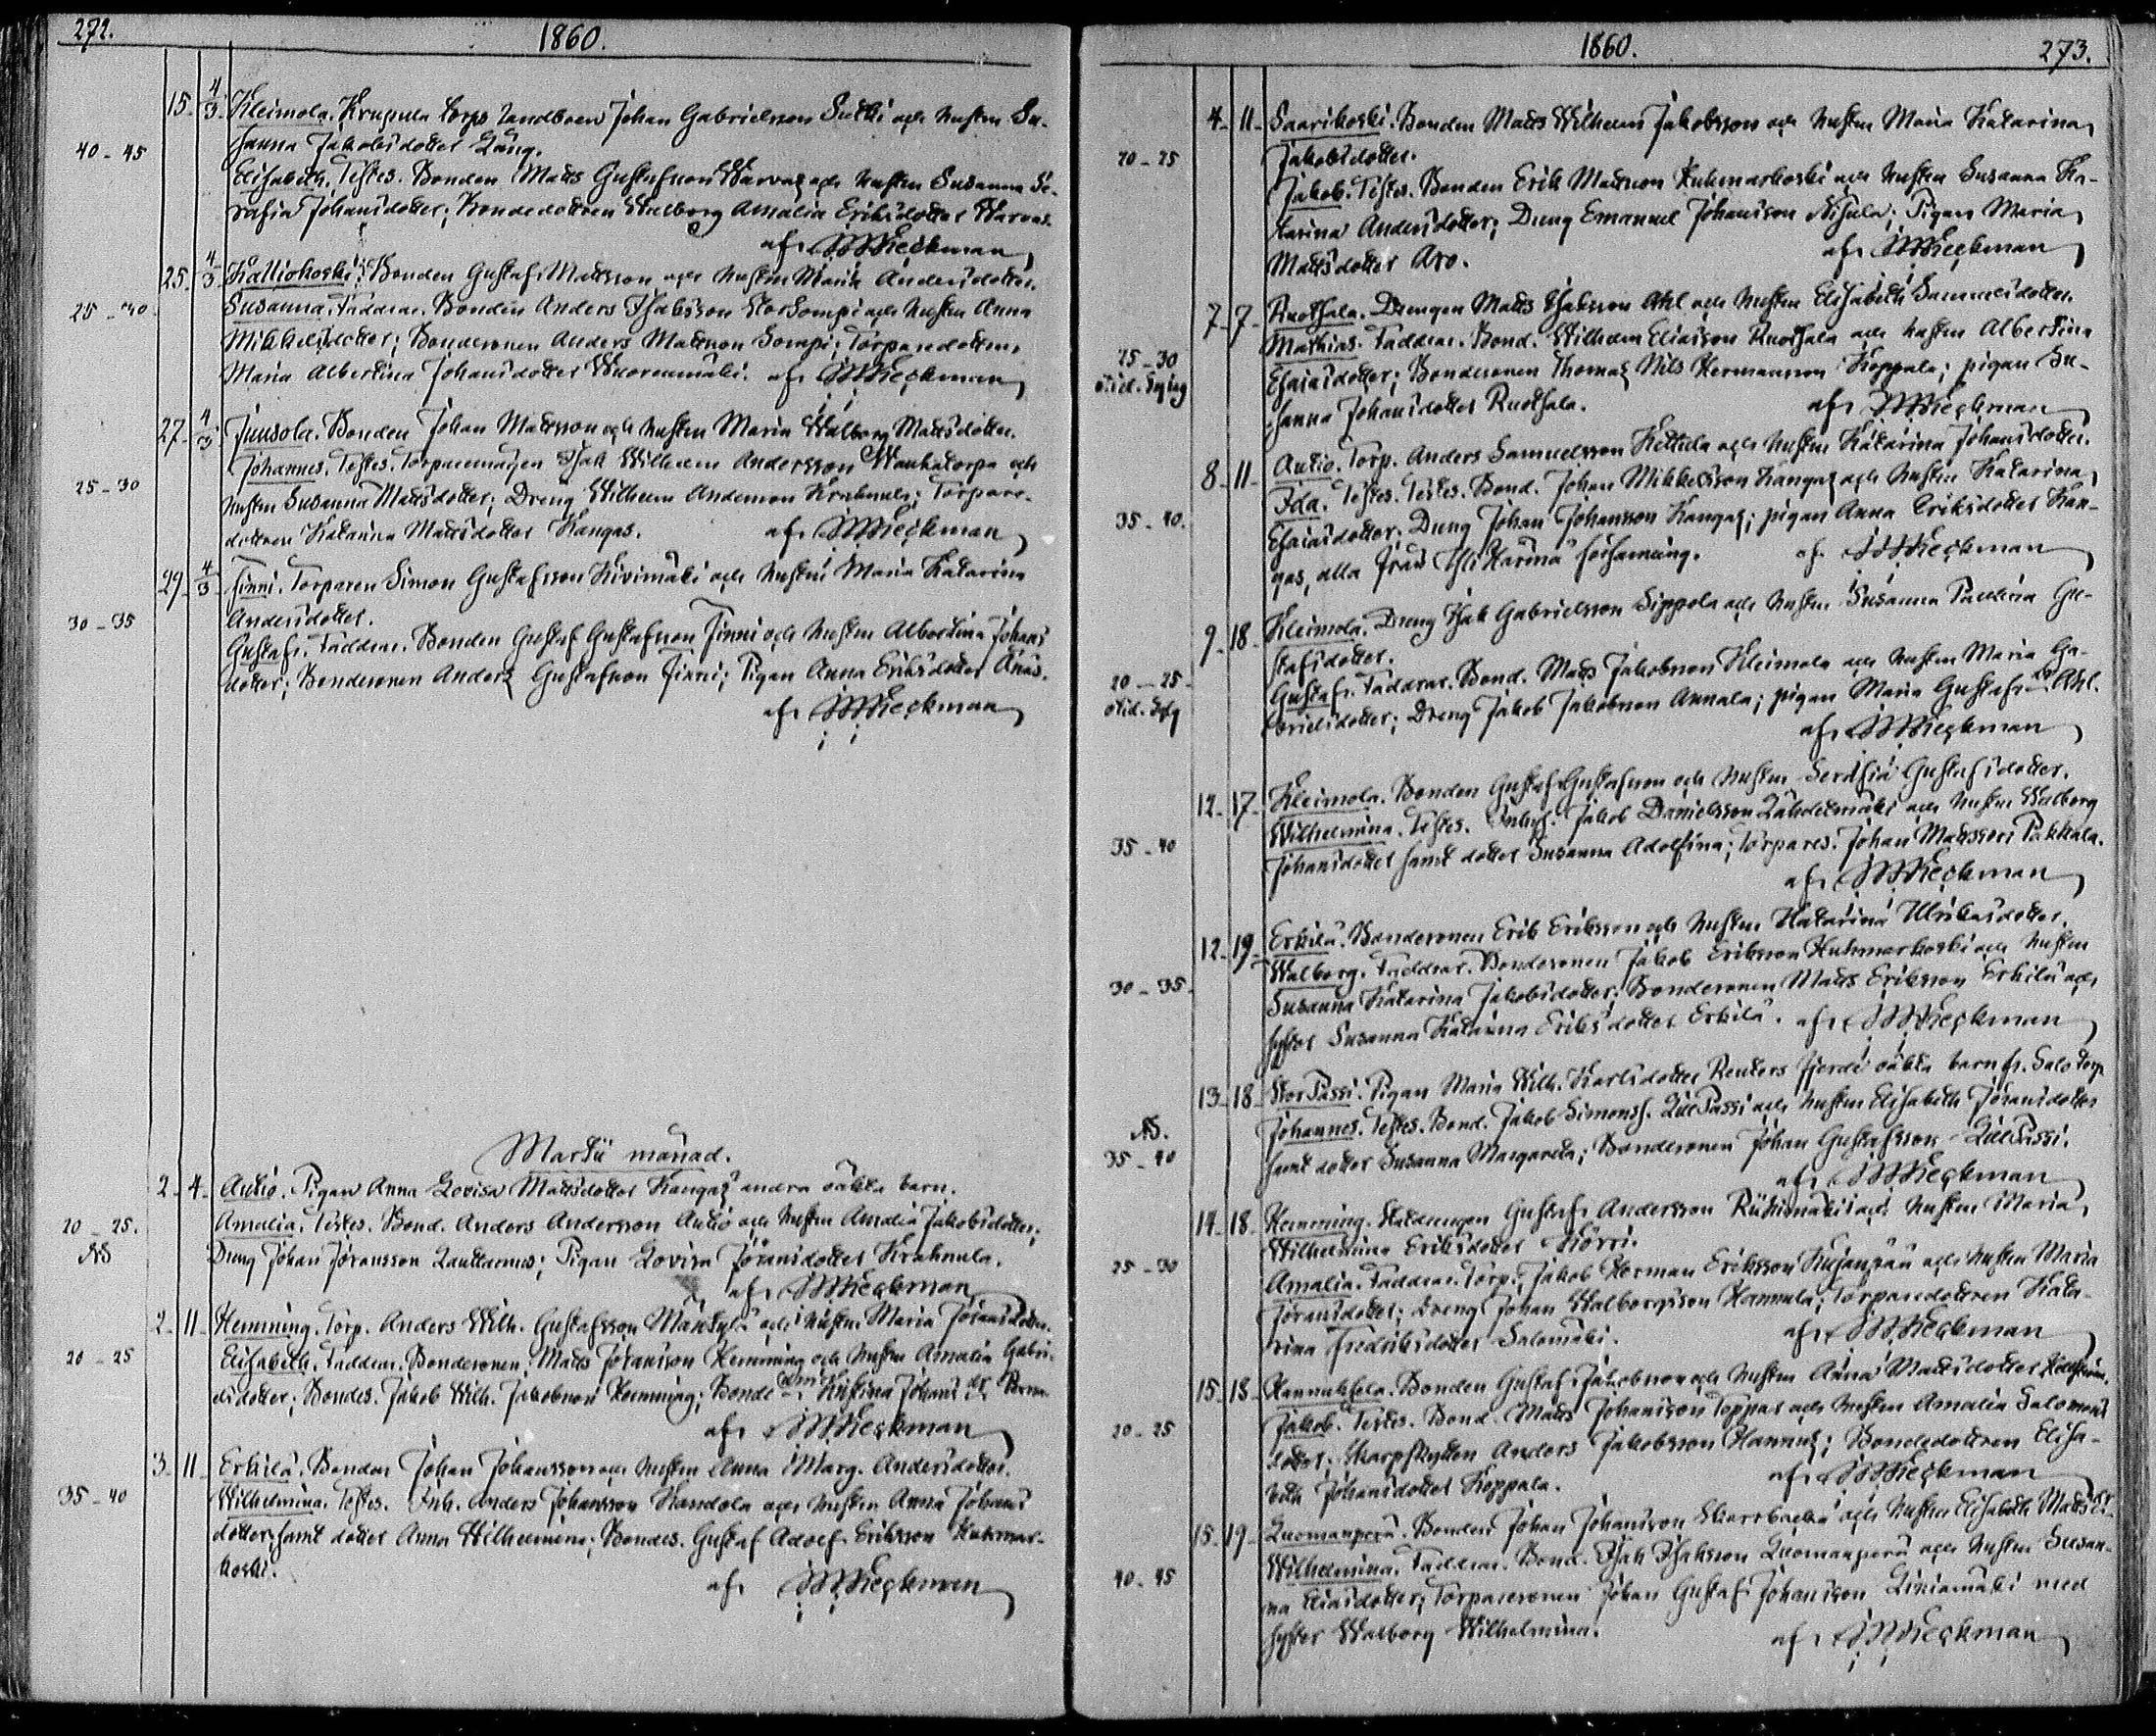 272.
1860.
15. 4/3. Kleimola. Krupula torps landboen Johan Gabrielsson Sutki och hustru Su-
sanna Jakobsdotter Lång.
40-45
Elisabeth. Testes. Bonden Matts Gustafsson Warvas och hustru Susanna Se-
rafia Johansdotter; Bondedottren Walborg Amalia Eriksdotter Warvas.
af J W Wieckman
25. 4/3 Kalliokoski. Bonden Gustaf Mattsson och hustru Maria Andersdotter.
25-30
Susanna. Faddrar. Bonden Anders Isaksson StorSompi och hustru Anna
Mikkelsdotter; Bondesonen Anders Mattsson Sompi; Torparedottren
Maria Albertina Johansdotter Wuorenmäki. af J W Wieckman
27. 4/3 Juusola. Bonden Johan Mattsson och hustru Maria Walborg Mattsdotter.
Johannes. Testes. Torparemågen Isak Wilhelm Andersson Wanhatorpa och
25-30
hustru Susanna Mattsdotter; Dreng Wilhelm Andersson Krahnula; Torpare-
dottren Katarina Mattsdotter Kangas. af J W Wieckman
29. 4/3 Finni. Torparen Simon Gustafsson Kivimäki och hustru Maria Katarina
Andersdotter.
30-35
Gustaf. Faddrar. Bonden Gustaf Gustafsson Finni och hustru Albertina Johans
dotter; Bondesonen Anders Gustafsson Finni; Pigan Anna Eriksdotter Knäs.
af J W Wieckman
Martii månad.
2. 4. Autio. Pigan Anna Lovisa Mattsdotter Kangas andra oäkta barn.
20-25.
Amalia. Testes. Bond. Anders Andersson Autio och hustru Amalia Jakobsdotter;
Dreng Johan Jöransson Lauttamus; Pigan Lovisa Jöransdotter Krahnula.
af J W Wieckman
2. 11. Hemming. Torp. Anders Wilh. Gustafsson Mäntylä och hustru Maria Jöransdotter.
20-25
Elisabeth. Faddrar. Bondesonen Matts Johansson Hemming och hustru Amalia Gabri-
elsdotter; Bondes. Jakob Wilh. Jakobsson Hemming; Bonde Kristina Johans dr
af J W Wieckman
3. 11. Erkilä. Bonden Johan Johansson och hustru Anna Marg. Andersdotter.
35-40
Wilhelmina. Testes. Inh. Anders Johansson Kandola och hustru Anna Johans
dotter, samt dotter Anna Wilhelmina; Bondes. Gustaf Adolf Eriksson Kuhmas-
koski.
af J W Wieckman
1860.
273.
4. 11. Saarikoski. Bonden Matts Wilhelm Jakobsson och hustru Maria Katarina
20-25
Jakobsdotter.
Jakob. Testes. Bonden Erik Mattsson Kuhmaskoski och hustru Susanna Ka-
tarina Andersdotter; Dreng Emanuel Johansson Nisula; Pigan Maria
Mattsdotter Aro. af J W Wieckman
7. 7. Ruothala. Drengen Matts Isaksson Ahl och hustru Elisabeth Sammelsdotter.
25-30
Mathias. Faddrar. Bond. Wilhelm Eliasson Ruothala och hustru Albertina
Esaiasdotter; Bondesonen Thomas Nils Hermansson Koppala; pigan Su-
sanna Johansdotter Ruothala. af J W Wieckman
8. 11. Autio. Torp. Anders Samuelsson Kettula och hustru Katarina Johansdotter.
35-40.
Ida. Testes. Testes. Bond. Johan Mikkelsson Kangas och hustru Katarina
Esaiasdotter; Dreng Johan Johansson Kangas; pigan Anna Eriksdotter Kan-
gas, alla från Ylihärmä församling. af J W Wieckman
9. 18. Kleimola. Dreng Isak Gabrielsson Sippola och hustru Susanna Paulina Gu-
stafsdotter.
20-25
Gustaf. Faddrar. Bond. Matts Jakobsson Kleimola och hustru Maria Ga-
brielsdotter; Dreng Jakob Jakobsson Annala; pigan Maria Gustafs dr Ahl.
af J W Wieckman
12. 17. Kleimola. Bonden Gustaf Gustafsson och hustru Serafia Gustafsdotter.
35-40
Wilhelmina. Testes. Inhys. Jakob Danielsson Lähdetmäki och hustru Walborg
Johansdotter samt dotter Susanna Adolfina; Torpares. Johan Mattsson Pakkala.
af J W Wieckman
12. 19. Erkilä. Bondesonen Erik Eriksson och hustru Katarina Ulriksdotter.
30-35.
Walborg. Faddrar. Bondesonen Jakob Eriksson Kuhmaskoski och hustru
Susanna Katarina Jakobsdotter; Bondesonen Matts Eriksson Erkilä och
syster Susanna Katarina Eriksdotter Erkilä. af J W Wieckman
13. 18. StorPassi. Pigan Maria Wilh. Karlsdotter Reuters fjerde oäkta barn fr. Salo torp
35-40
Johannes. Testes. Bond. Jakob Simonss. LillPassi och hustru Elisabeth Jöransdotter
samt dotter Susanna Margareta; Bondesonen Johan Gustafsson LillPassi.
af J W Wieckman
14. 18. Hemming. Statdrengen Gustaf Andersson Riihimäki och hustru Maria
Wilhelmina Eriksdotter Hörri.
25-30
Amalia. Faddrar. Torp. Jakob Herman Eriksson Kujanpää och hustru Maria
Jöransdotter; Dreng Johan Walborgsson Hannula; Torparedottren Kata-
rina Fredriksdotter Salomäki. af J W Wieckman
15. 18. Hannuksela. Bonden Gustaf Jakobsson och hustru Anna Mattsdotter
20-25
Jakob. Testes. Bond. Matts Johansson Toppar och hustru Amalia Salomons
dotter; Skarpskytten Anders Jakobsson Hannus; Bondedottren Elisa-
beth Johansdotter Koppala. af J W Wieckman
15. 19. Luomanperä. Bonden Johan Johansson Skarrbacka och hustru Elisabeth Matts dr
40-45
Wilhelmina. Faddrar. Bond. Isak Isaksson Luomanperä och hustru Susan-
na Eliasdotter; Torparesonen Johan Gustaf Johansson Liniamäki med
syster Walborg Wilhelmina. af J W Wieckman